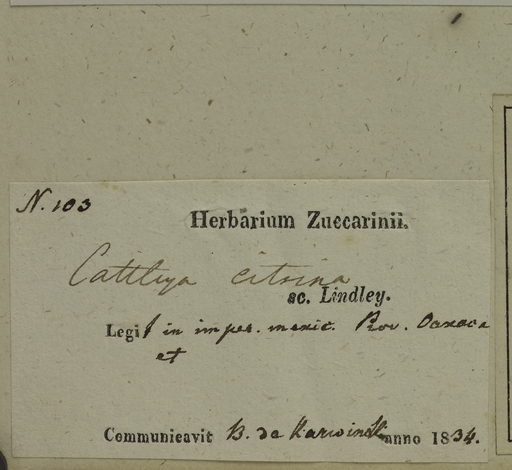 N. 103
Herbarium Zuccarinii.
Cattleya citrina
ac. Lindley.
Legit in imper. mexic. Prov. Oaxaca
et
Communicavit B. de Karwinski anno 1834.